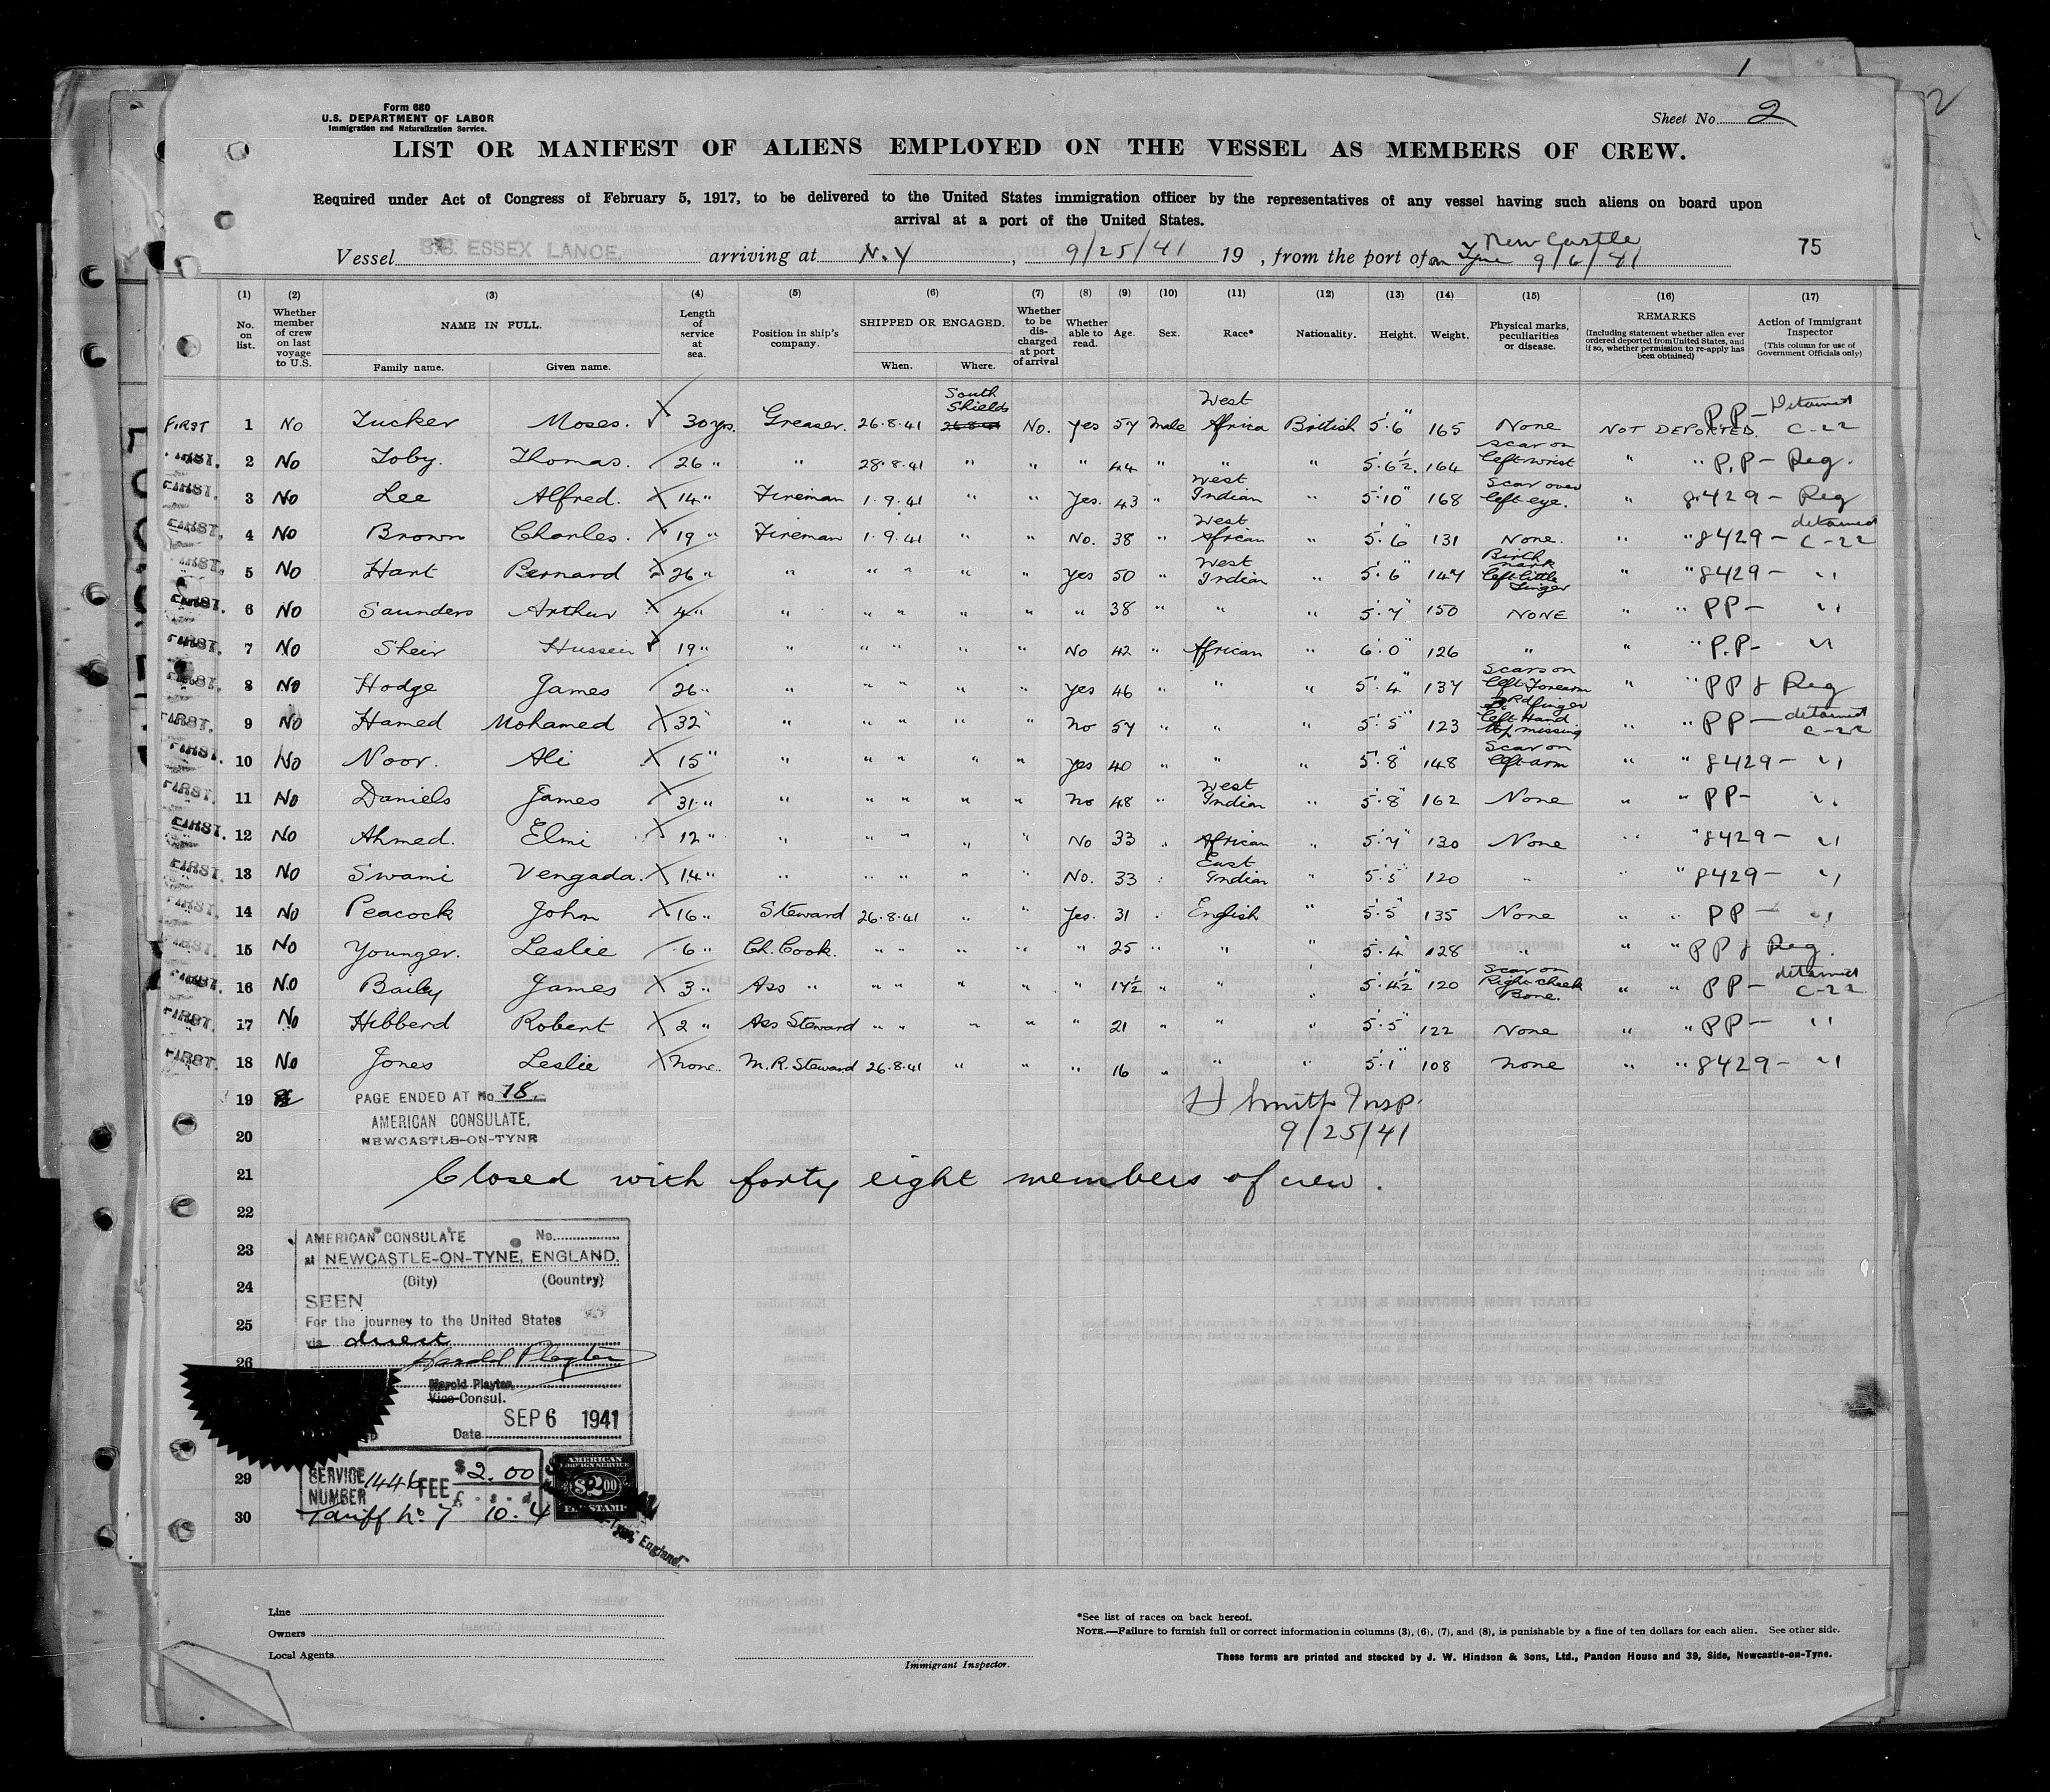 1
2
Form 680
U.S. DEPARTMENT OF LABOR
Immigration and Naturalization Service.
Sheet No. 2
LIST OR MANIFEST OF ALIENS EMPLOYED ON THE VESSEL AS MEMBERS OF CREW.
Required under Act of Congress of February 5, 1917, to be delivered to the United States immigration officer by the representatives of any vessel having such aliens on board upon
arrival at a port of the United States.
Vessel S.S. ESSEX LANCE, arriving at N.Y , 9/25/41 19 , from the port of New Castle on Tyne 9/6/41 75
(1) No. on list.
(2) Whether member of crew on last voyage to U.S.
(3) NAME IN FULL. Family name. Given name.
(4) Length of service at sea.
(5) Position in ship's company.
(6) SHIPPED OR ENGAGED. When. Where.
(7) Whether to be discharged at port of arrival
(8) Whether able to read.
(9) Age.
(10) Sex.
(11) Race*
(12) Nationality.
(13) Height.
(14) Weight.
(15) Physical marks, peculiarities or disease.
(16) REMARKS (Including statement whether alien ever ordered deported from United States, and if so, whether permission to re-apply has been obtained)
(17) Action of Immigrant Inspector (This column for use of Government Officials only)
FIRST 1 No Tucker Moses. 30 yrs. Greaser. 26.8.41 South Shields No. Yes 57 Male West Africa British 5'.6" 165 None NOT DEPORTED. PP - Detained C-22
FIRST. 2 No Toby. Thomas. 26 " " 28.8.41 " " " 44 " " " 5'.6½. 164 Scar on left wrist " " P.P - Reg.
FIRST. 3 No Lee Alfred. X 14 " Fireman 1.9.41 " " Yes. 43 " West Indian " 5'10" 168 Scar over left eye. " 8429 - Reg
FIRST. 4 No Brown Charles. X 19 " Fireman 1.9.41 " " No. 38 " West African " 5'.6" 131 None. " " 8429 - detained C-22
FIRST. 5 No Hart Bernard 26 " " " " " " Yes 50 " West Indian " 5'.6" 147 Birth mark left little finger " " 8429 - "
FIRST. 6 No Saunders Arthur X 4 " " " " " " " 38 " " " 5'.7" 150 NONE " " PP - "
FIRST. 7 No Sheir Hussein 19 " " " " " " No 42 " African " 6'.0" 126 " " " P.P - "
FIRST. 8 No Hodge James 26 " " " " " " Yes 46 " " " 5'.4" 137 Scars on left forearm " " PP & Reg
FIRST. 9 No Hamed Mohamed X 32 " " " " " " No 57 " " " 5'.5" 123 3rd finger left hand top missing " " PP - detained C-22
FIRST. 10 No Noor. Ali X 15 " " " " " " Yes 40 " " " 5'.8" 148 Scar on left arm " " 8429 - "
FIRST. 11 No Daniels James X 31 " " " " " " No 48 " West Indian " 5'.8" 162 None " " PP - "
FIRST. 12 No Ahmed. Elmi X 12 " " " " " " No 33 " African " 5'.7" 130 None " " 8429 - "
FIRST. 13 No Swami Vengada. X 14 " " " " " " No. 33 " East Indian " 5'.5" 120 " " " 8429 - "
FIRST. 14 No Peacock John X 16 " Steward 26.8.41 " " Yes. 31 " English " 5'.5" 135 None " " PP - "
FIRST. 15 No Younger. Leslie 6 " Ch. Cook. " " " " " 25 " " " 5'.4" 128 " " " PP & Reg.
FIRST. 16 No Baily James X 3 " Ass " " " " " " 17½ " " " 5'.4½" 120 Scar on Right cheek Bone. " " PP - detained C-22
FIRST. 17 No Hibberd Robert X 2 " Ass Steward " " " " " 21 " " " 5'.5" 122 None " " PP - "
FIRST. 18 No Jones Leslie X None. M.R. Steward 26.8.41 " " " 16 " " " 5'.1" 108 None " " 8429 - "
19 PAGE ENDED AT No 18. H Smith Insp.
20 AMERICAN CONSULATE, NEWCASTLE-ON-TYNE 9/25/41
21 Closed with forty eight members of crew.
22
23
24
25
26
29
30
AMERICAN CONSULATE No.
at NEWCASTLE-ON-TYNE, ENGLAND.
(City) (Country)
SEEN
For the journey to the United States
via direct
Harold Playter
Harold Playter
Vice-Consul.
Date SEP 6 1941
SERVICE NUMBER 1446 FEE $2.00
£ . s . d
Tariff No 7 10.4
AMERICAN FOREIGN SERVICE
$2.00
FEE STAMP
Tyne, England.
Line
Owners
Local Agents
Immigrant Inspector.
*See list of races on back hereof.
NOTE.—Failure to furnish full or correct information in columns (3), (6), (7), and (8), is punishable by a fine of ten dollars for each alien. See other side.
These forms are printed and stocked by J. W. Hindson & Sons, Ltd., Pandon House and 39, Side, Newcastle-on-Tyne.